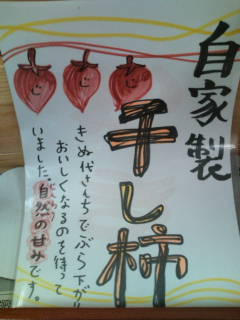 自家製
干し柿
きぬ代さちでぶら下がり
おいしくなるのを待って
いました。自然の甘みです。